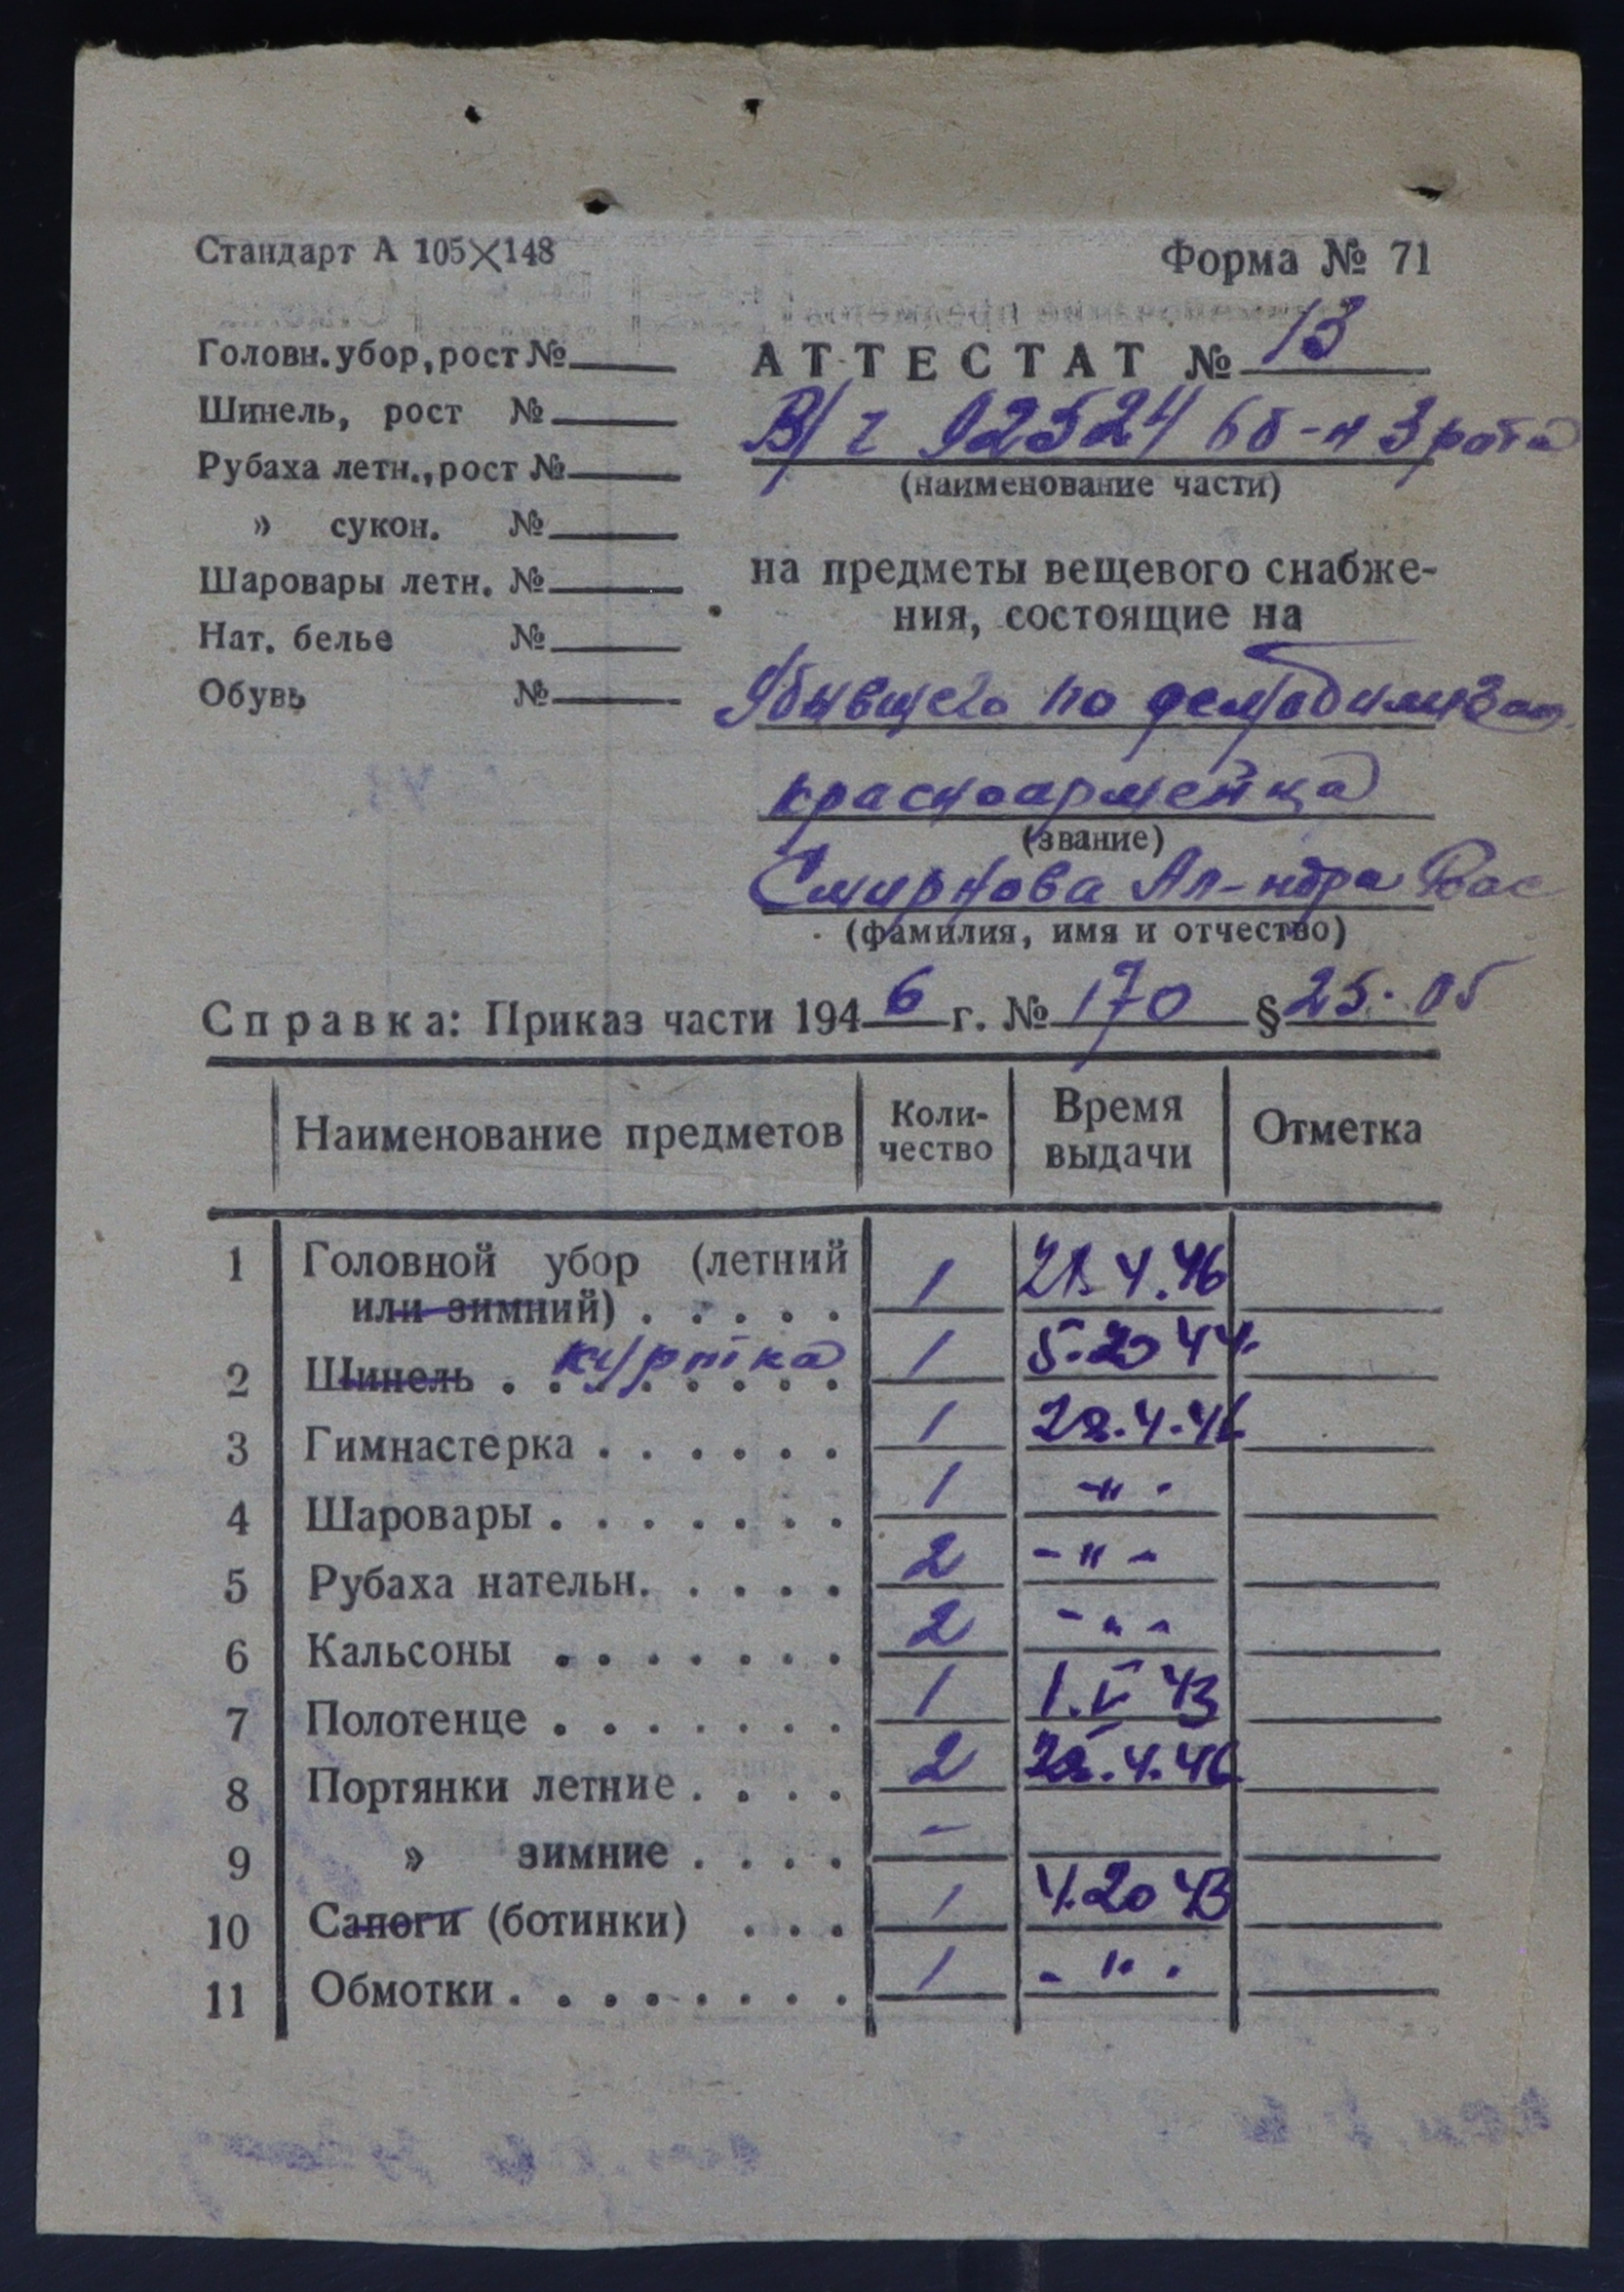 Стандарт А 105×148
Форма № 71
Головн. убор, рост №
Шинель, рост №
Рубаха летн., рост №
» сукон. №
Шаровары летн. №
Нат. белье №
Обувь №
АТТЕСТАТ № 13
В/ч 92524 6 б-н 3 рота
(наименование части)
на предметы вещевого снабже-
ния, состоящие на
Убывшего по демобилизац
красноармейца
(звание)
Смирнова Ал-ндра Вас
(фамилия, имя и отчество)
Справка: Приказ части 1946 г. № 170 § 25.05
Наименование предметов Коли-чество Время выдачи Отметка
1 Головной убор (летний
или зимний) . . . . . 1 21.4.46
2 Шинель . куртка 1 5.20 44.
3 Гимнастерка . . . . . . 1 22.4.46
4 Шаровары . . . . . . . 1 -"-
5 Рубаха нательн. . . . . 2 -"-
6 Кальсоны . . . . . . . 2 -"-
7 Полотенце . . . . . . . 1 1.V 43
8 Портянки летние . . . . 2 22.4.46
9 » зимние . . . . -
10 Сапоги (ботинки) . . . 1 4.20 43
11 Обмотки . . . . . . . . 1 -"-